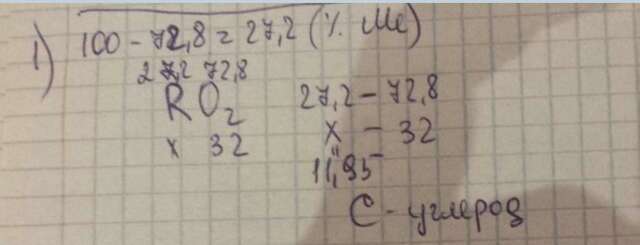 1) 100 - 72,8 = 27,2 (% Me)
27,2 72,8
RO2
x 32
27,2 - 72,8
x - 32
11,95
C - углерод